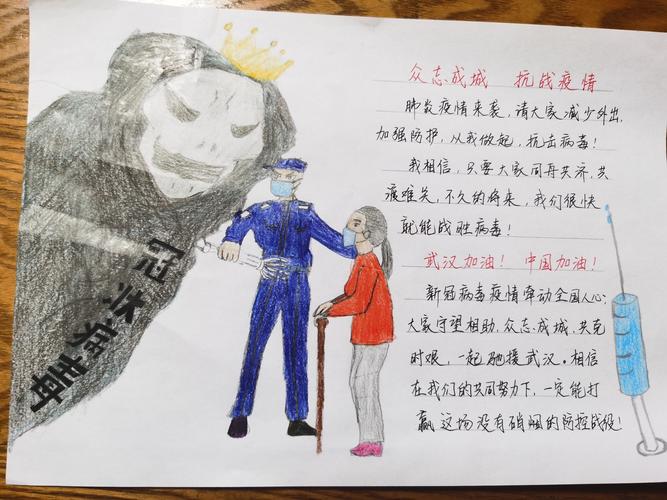 冠状病毒
众志成城 抗战疫情
肺炎疫情来袭,请大家减少外出,
加强防护,从我做起,抗击病毒!
我相信,只要大家同舟共济,共
渡难关,不久的将来,我们很快
就能战胜病毒!
武汉加油! 中国加油!
新冠病毒疫情牵动全国人心;
大家守望相助,众志成城,共克
时艰,一起驰援武汉。相信
在我们的共同努力下,一定能打
赢这场没有硝烟的防控战役!